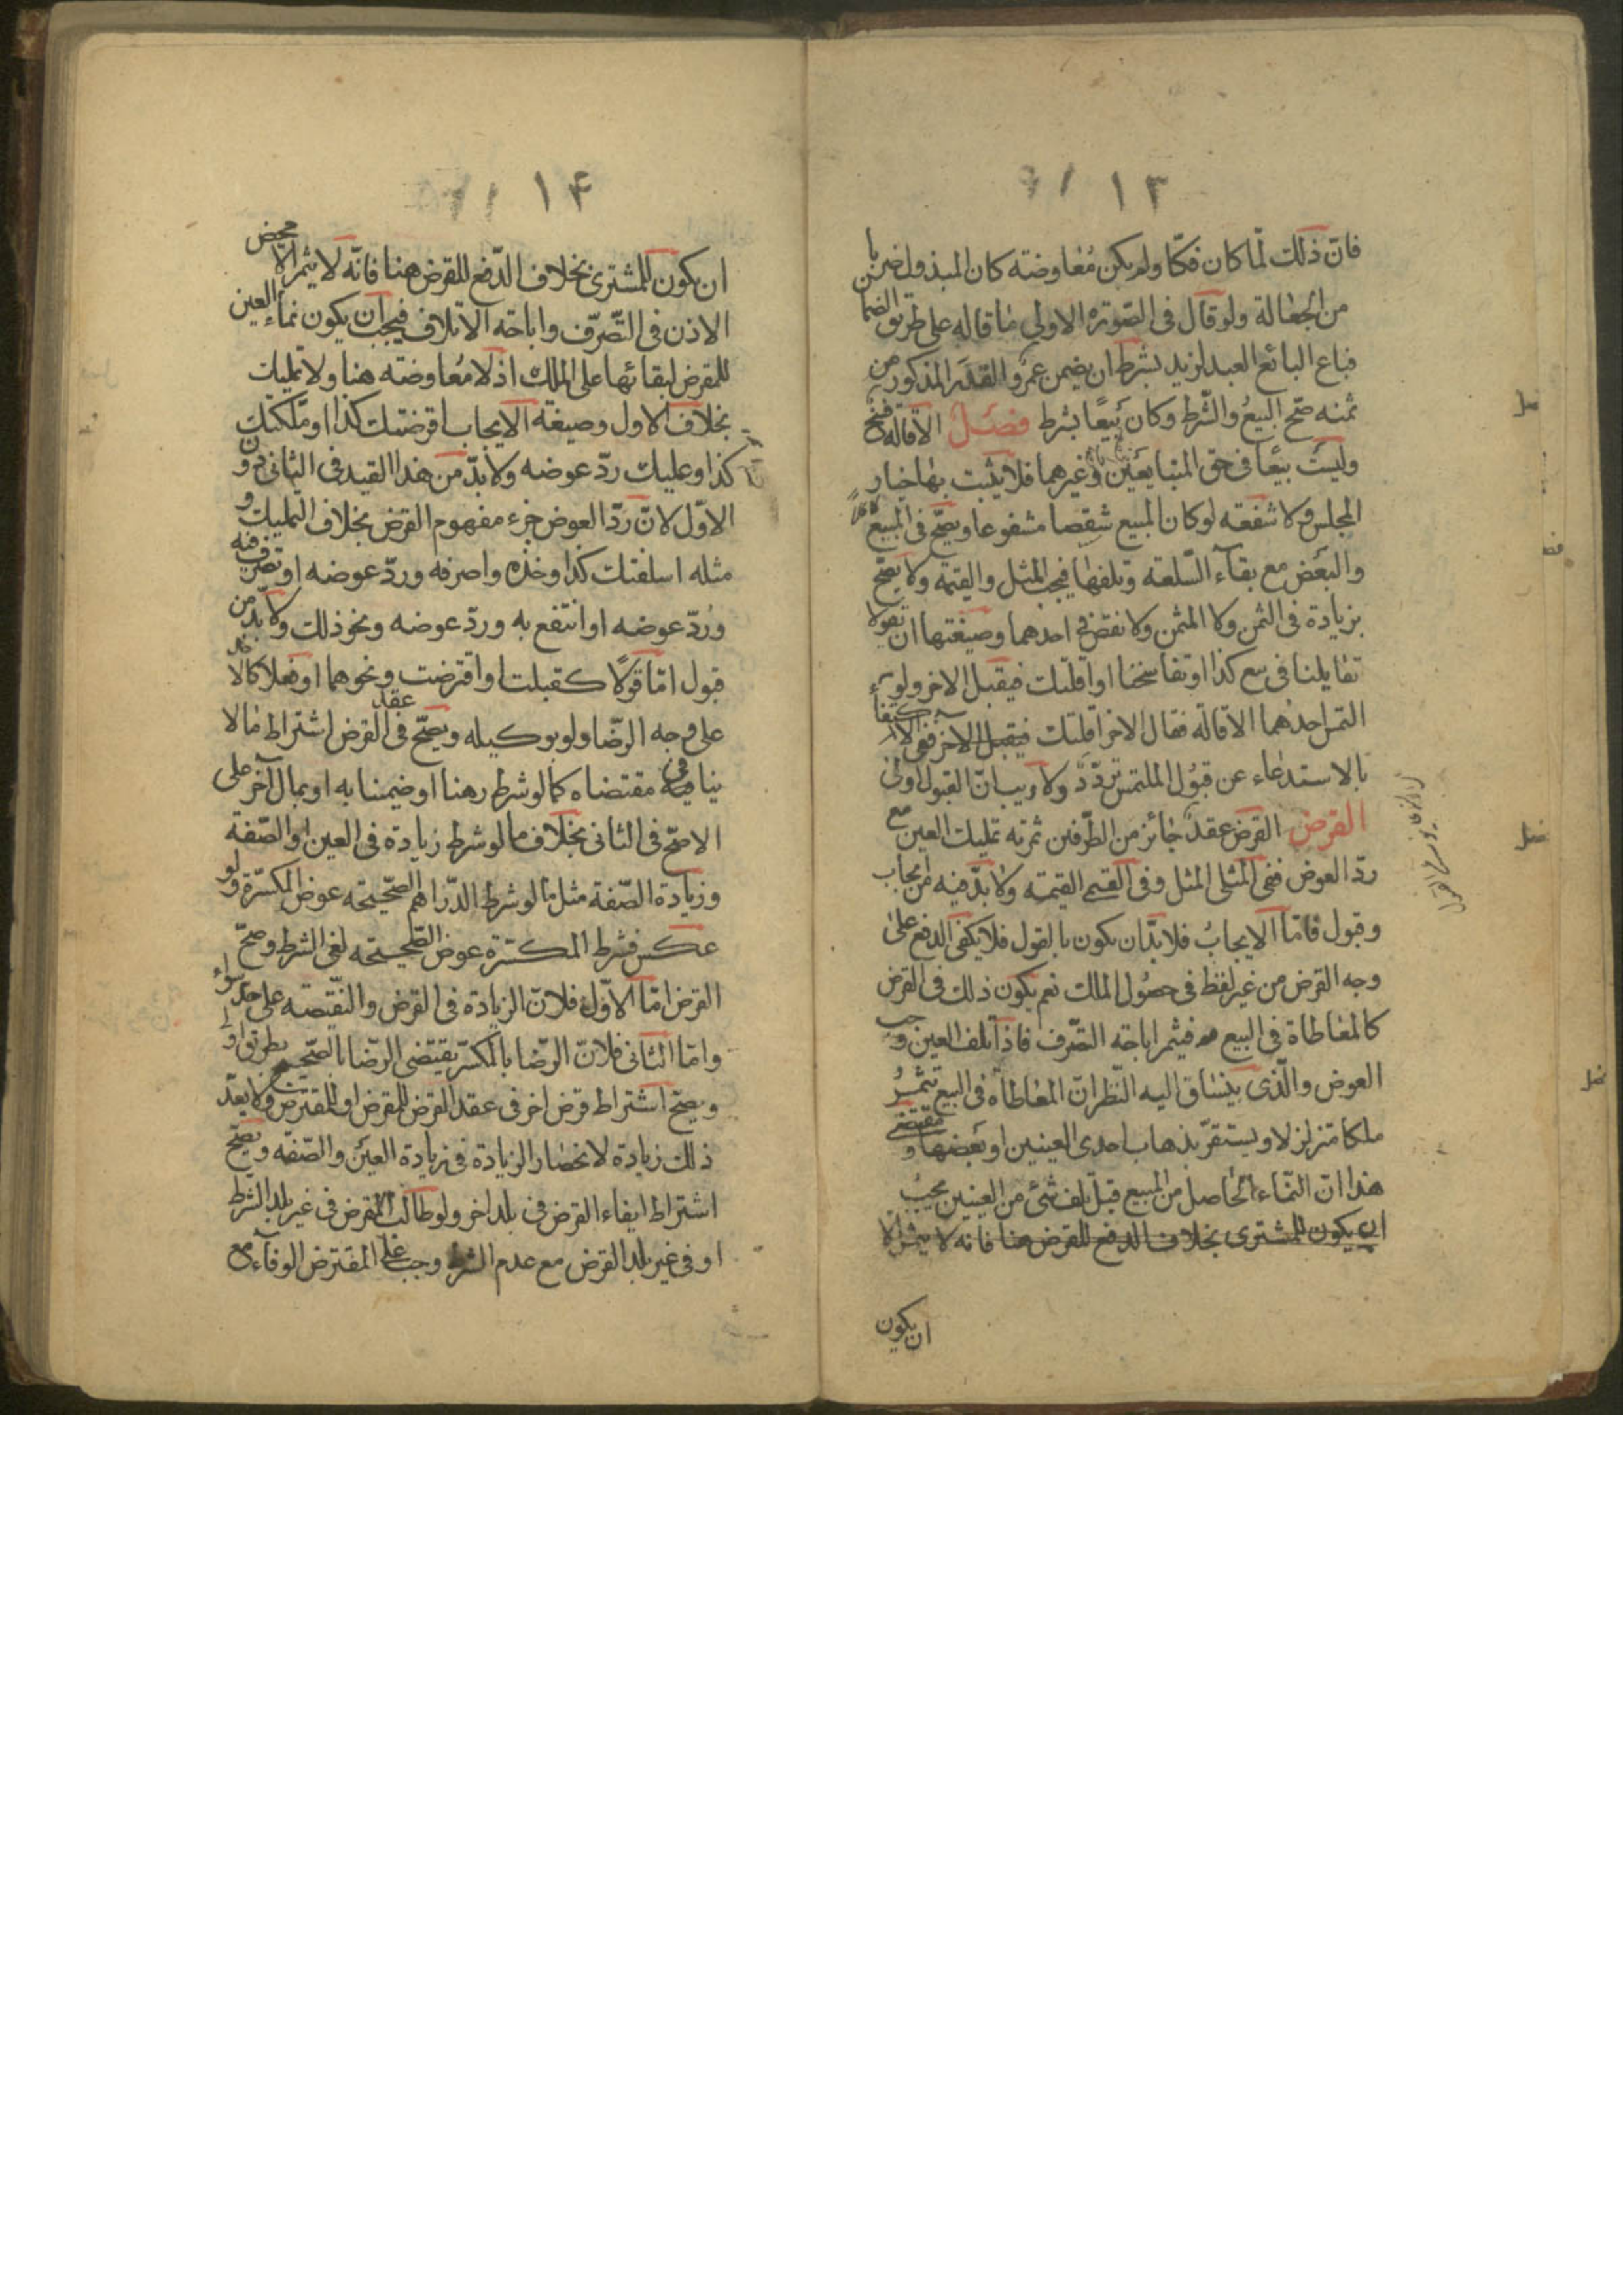 ١٣
فانّ ذلك لمّا كان فكّا ولم يكن مُعاوضته كان المبذول ضربا
من الجعالة ولو قال فى الصّورة الاولى ما قاله على طريق الضما
فباع البائع العبد لزيد بشرط ان يضمن عمرو القدر المذكور من
ثمنه صحّ البيعُ والشّرط وكان بيعًا بشرط فصل الاقالة فسخ
وليست بيعًا فى حق المتبايعين وغيرهما فلا يثبت بها خيار
المجلس ولا شفعته لو كان المبيع شقصا مشفوعا ويصحّ فى المبيع
والبعض مع بقآء السّلعته وتلفها فيجب المثل والقيمة ولا يصحّ
بزيادة فى الثمن ولا المثمن ولا نقص فى احدهما وصيغتها ان تقولا
تقايلنا فى بيع كذا او تفاسخنا او اقلتك فيقبل الاخر ولو
التمس احدهما الاقالة فقال الاخر اقلتك فيقبل الآخر ففى الاكتفآء
بالاستدعاء عن قبول الملتمس تردّد ولا ريب انّ القبول اولى
القرض القرض عقد جائز من الطّرفين ثمرته تمليك العين مع
ردّ العوض ففى المثلى المثل وفى القيمى القيمته ولا بدّ فيه من ايجاب
وقبول فامّا الايجابُ فلا بدّ ان يكون بالقول فلا يكفى الدفع على
وجه القرض من غير لفظ فى حصُول الملك نعم يكون ذلك فى القرض
كالمعاطاة فى البيع فيثمر اباحته التصّرف فاذا تلف العين وجب
العوض والّذى ينساق اليه النّظر انّ المعاطاة فى البيع تثمرُ
ملكا متزلزلا ويستقرّ بذهاب احدى العينين او بعضها ومقتضى
هذا انّ النّماء الحاصل من المبيع قبل تلف شئ من العينين يجبُ
ان يكون للمشترى بخلاف الدفع للقرض هنا فانه لا يثمر الا
ان يكون
١۴
ان يكون للمشترى بخلاف الدّفع للقرض هنا فانّه لا يثمر الّا محض
الاذن فى التّصرّف واباحته الاتلاف فيجب ان يكون نماء العين
للمقرض لبقائها على الملك اذ لا مُعاوضته هنا ولا تمليك
بخلاف الاول وصيغة الايجاب اقرضتك كذا او ملّكتك
كذا وعليك ردّ عوضه ولا بدّ من هذا القيد فى الثانى دون
الاوّل لانّ ردّ العوض جزء مفهوم القرض بخلاف التمليك و
مثله اسلفتك كذا وخذه واصرفه وردّ عوضه او تصرّف فيه
وردّ عوضه او انتفع به وردّ عوضه ونحو ذلك ولا بدّ من
قبول امّا قولًا كقبلت او اقترضت ونحوهما او فعلا كالاخذ
على وجه الرّضا ولو بوكيله ويصحّ فى عقد القرض اشتراط ما لا
ينافى مقتضاه كما لو شرط رهنا او ضمينا به او بمال آخر على
الاصحّ فى الثانى بخلاف ما لو شرط زيادة فى العين او الصّفة
وزيادة الصّفة مثل ما لو شرط الدّراهم الصّحيحته عوض المكسّرة ولو
عكس فشرط المكسّرة عوض الصّحيحته لغى الشرط وصحّ
القرض امّا الاوّل فلانّ الزيادة فى القرض والنّقيصته على حدّ سواء
وامّا الثانى فلانّ الرّضا بالمكسّر يقتضى الرّضا بالصّحيح بطريق اولى
ويصحّ اشتراط قرض اخر فى عقد القرض للمقرض او للمقترض ولا يعدّ
ذلك زيادة لانحصار الزيادة فى زيادة العين والصّفة ويصحّ
اشتراط ايفاء القرض فى بلد اخر ولو طالب المقرض فى غير بلد الشّرط
او فى غير بلد القرض مع عدم الشرط وجب على المقترض الوفآء مع